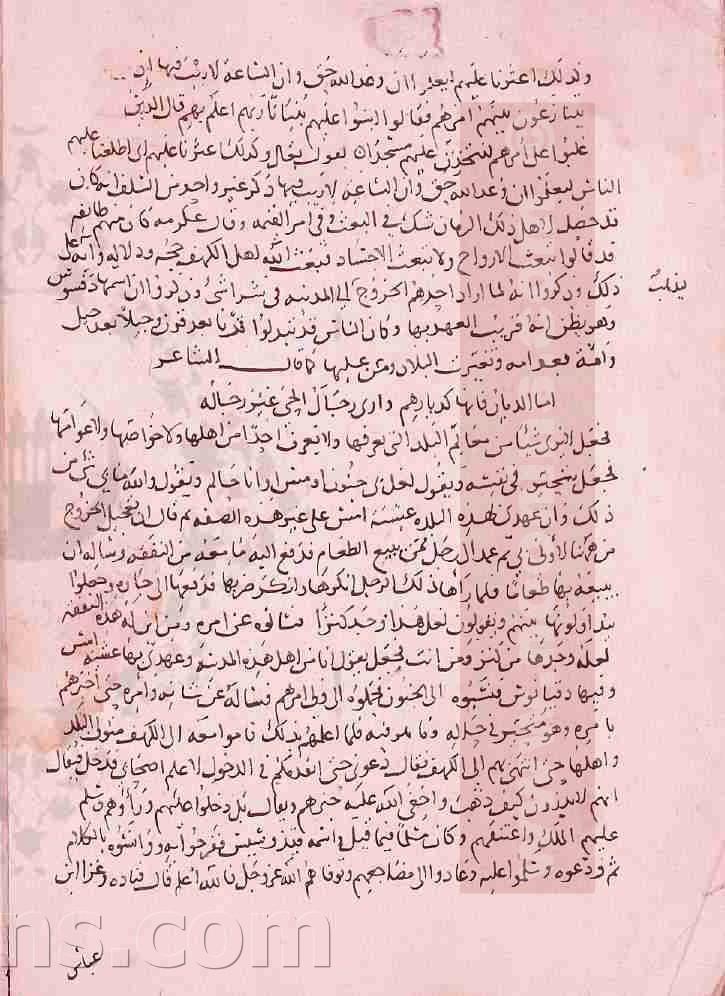 وكذلك اعثرنا عليهم ليعلموا ان وعد الله حق وان الساعة لا ريب فيها اذ
يتنازعون بينهم امرهم فقالوا ابنوا عليهم بنيانا ربهم اعلم بهم قال الذين
غلبوا على امرهم لنتخذن عليهم مسجدا يقول تعالى وكذلك اعثرنا عليهم اى اطلعنا عليهم
الناس ليعلموا ان وعد الله حق وان الساعة لا ريب فيها ذكر غير واحد من السلف انه كان
قد حصل لاهل ذلك الزمان شك في البعث وفي امر القيمه وقال عكرمه كان منهم طايفه
قد قالوا تبعث الارواح ولا تبعث الاجساد فبعث الله اهل الكهف حجه ودلاله وآيه على
ذلك وذكروا انه لما اراد احدهم الخروج الى المدينه في شرا شى وذكروا ان اسمه دقسوس
وهو يظن انه قريب العهد بها وكان الناس قد تبدلوا قرنا بعد قرن وجيلا بعد جيل
وامة بعد امه وتغيرت البلاد ومن عليها كما قال الشاعر
اما الديار فانها كديارهم وارى رجال الحى غير رجاله
فجعل لا يرى شيا من معالم البلد التى يعرفها ولا يعرف احدا من اهلها ولا خواصها ولا عوامها
فجعل يتحير في نفسه ويقول لعل بى جنون او مس او انا حالم ويقول والله ما بى شى من
ذلك وان عهدى بهذه البلده عشية امس على غير هذه الصفه ثم قال ان تعجيل الخروج
من ههنا لاولى بى ثم عمد الى رجل ممن يبيع الطعام فدفع اليه ما معه من النفقه وساله ان
يبيعه بها طعاما فلما راها ذلك الرجل انكرها وانكر ضربها فدفعها الى جاره وجعلوا
يتداولونها بينهم ويقولون لعل هذا وجد كنزا فسالوه عن امره ومن اين له هذه النفقه
لعله وجدها من كنز ومن انت فجعل يقول انا من اهل هذه المدينه وعهدى بها عشية امس
وفيها دقيانوس فنسبوه الى الجنون فحملوه الى ولى امرهم فساله عن شانه وامره حتى اخبرهم
بامره وهو متحير في حاله وما هو فيه فلما اعلمهم بذلك قاموا معه الى الكهف متولى البلد
واهلها حتى انتهى بهم الى الكهف فقال دعونى حتى اتقدمكم في الدخول لاعلم اصحابى فدخل فيقال
انهم لا يدرون كيف ذهب واخفى الله عليه خبرهم ويقال بل دخلوا عليهم وراوهم وسلم
عليهم الملك واعتنقهم وكان مسلما فيما قيل واسمه تيدوسيس ففرحوا به وآنسوه بالكلام
ثم ودعوه وسلموا عليه وعادوا الى مضاجعهم وتوفاهم الله عز وجل فالله اعلم قال قتاده وغزا ابن
عباس
ns.com